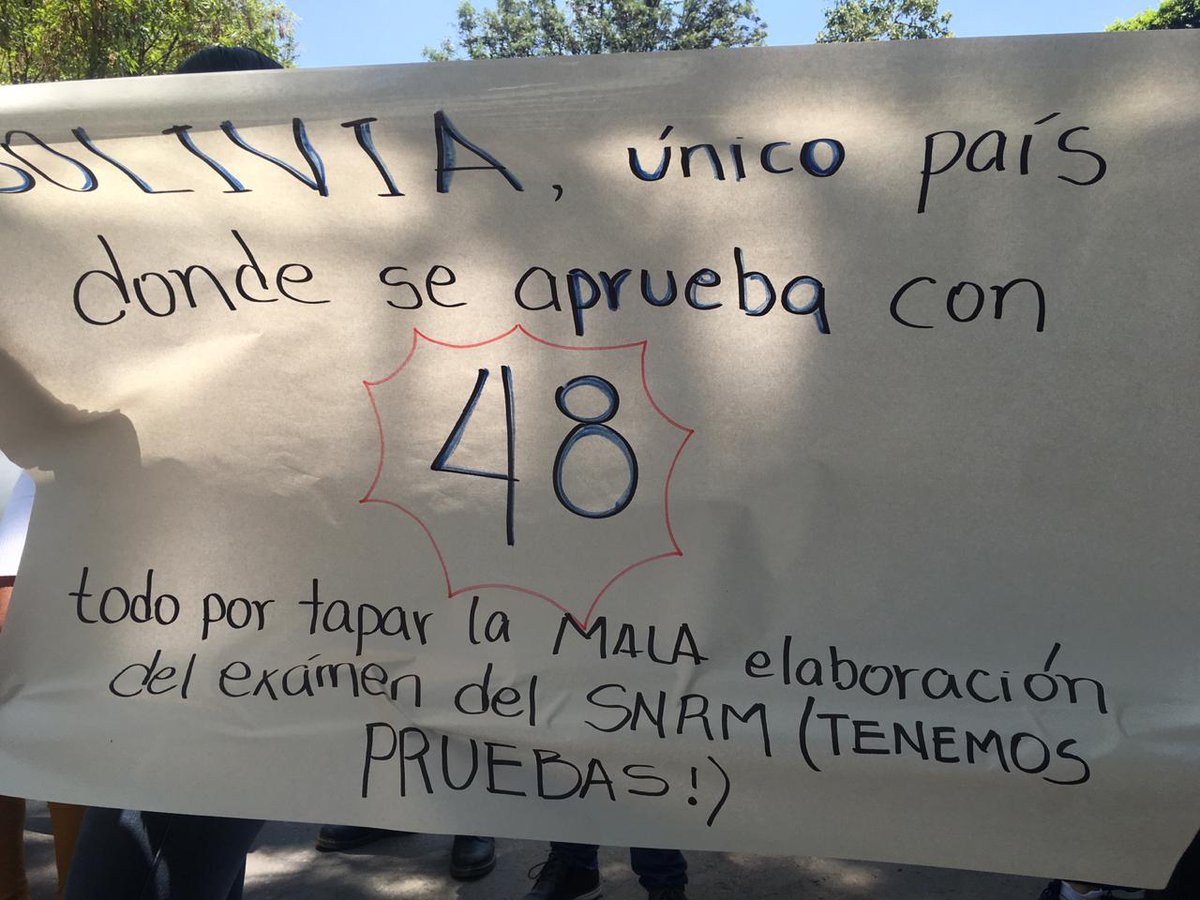 BOLIVIA, único país
donde se aprueba con
48
todo por tapar la MALA elaboración
del exámen del SNRM (TENEMOS
PRUEBAS!)